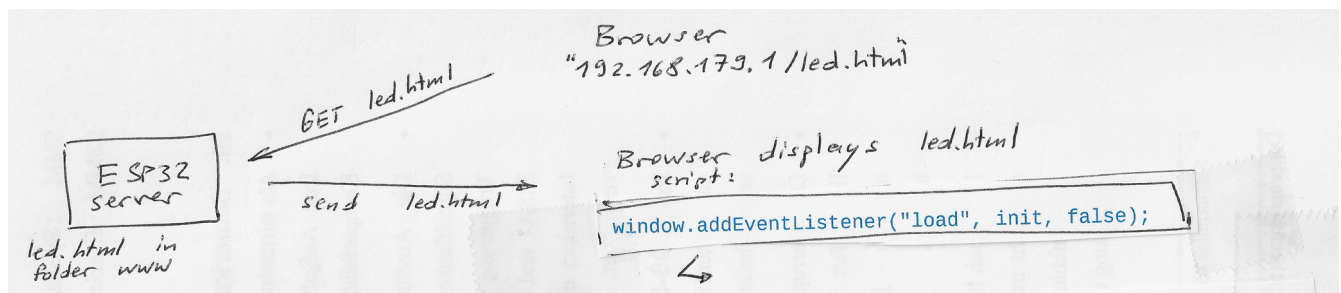 Browser
"192.168.179.1/led.html"
GET led.html
ESP32
server
Browser displays led.html
script:
send led.html
window.addEventListener("load", init, false);
led.html in
folder www